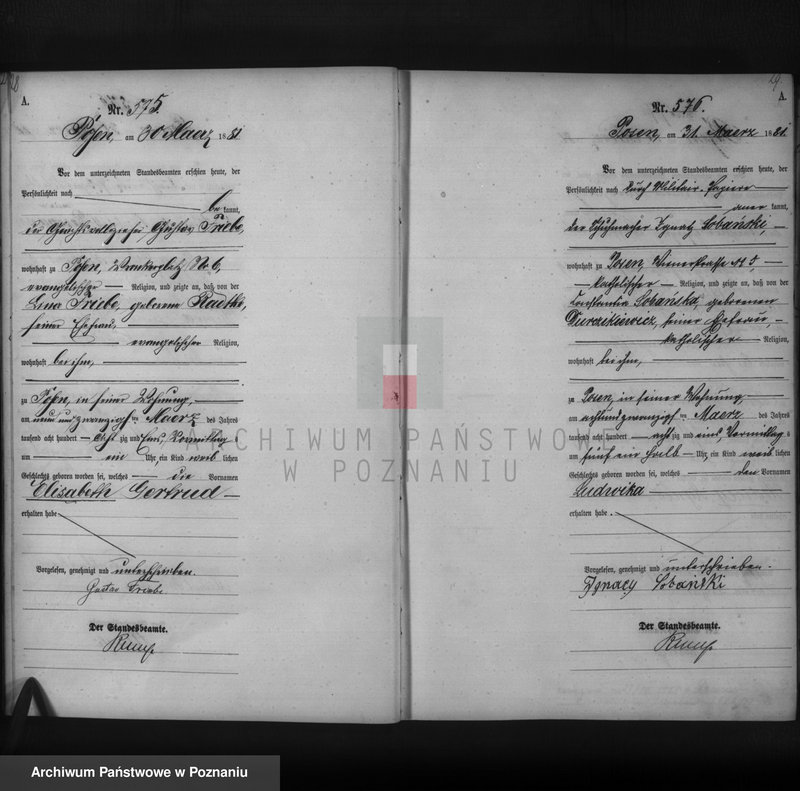 A.
Nr. 575.
Posen, am 30 Maerz 1881
Vor dem unterzeichneten Standesbeamten erschien heute, der
Persönlichkeit nach
be kannt,
der Gerichtsvollzieher Gustav Triebe,
wohnhaft zu Posen, No 6,
evangelischer Religion, und zeigte an, daß von der
Triebe, geborene
seiner Ehefrau,
evangelischer Religion,
wohnhaft bei ihm,
zu Posen, in seiner Wohnung,
am neunundzwanzigsten Maerz des Jahres
tausend acht hundert achtzig und eins, Vormittag s
um ein Uhr, ein Kind weib lichen
Geschlechts geboren worden sei, welches die Vornamen
Elisabeth Gertrud
erhalten habe
Vorgelesen, genehmigt und unterschrieben.
Gustav Triebe
Der Standesbeamte.
29.
A.
Nr. 576.
Posen, am 31. Maerz 1881.
Vor dem unterzeichneten Standesbeamten erschien heute, der
Persönlichkeit nach durch Militair-Papiere
aner kannt,
der Schuhmacher Ignatz Lobański,
wohnhaft zu Posen, Wienerstrasse No 5,
katholischer Religion, und zeigte an, daß von der
Constantia Lobańska, geborenen
seiner Ehefrau,
katholischer Religion,
wohnhaft bei ihm,
zu Posen, in seiner Wohnung
am achtundzwanzigsten Maerz des Jahres
tausend acht hundert achtzig und eins, Vormittag s
um fünf ein halb Uhr, ein Kind weib lichen
Geschlechts geboren worden sei, welches den Vornamen
Ludwika
erhalten habe.
Vorgelesen, genehmigt und unterschrieben.
Ignacy Lobański
Der Standesbeamte.
ARCHIWUM PAŃSTWOWE
W POZNANIU
Archiwum Państwowe w Poznaniu